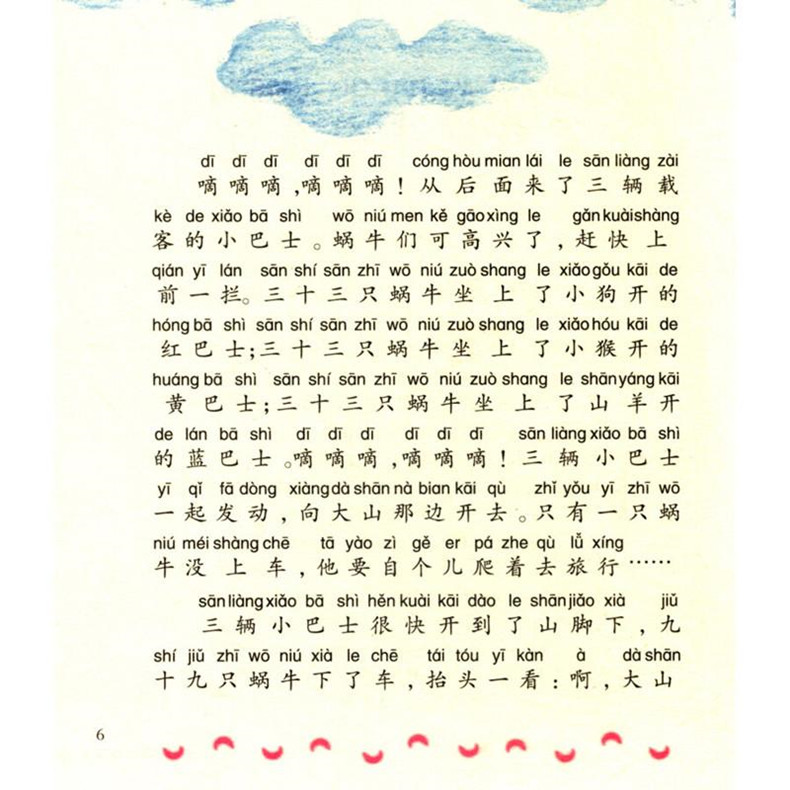 dī dī dī dī dī dī cóng hòu mian lái le sān liàng zài
嘀嘀嘀,嘀嘀嘀!从后面来了三辆载
kè de xiǎo bā shì wō niú men kě gāo xìng le gǎn kuài shàng
客的小巴士。蜗牛们可高兴了,赶快上
qián yī lán sān shí sān zhī wō niú zuò shang le xiǎo gǒu kāi de
前一拦。三十三只蜗牛坐上了小狗开的
hóng bā shì sān shí sān zhī wō niú zuò shang le xiǎo hóu kāi de
红巴士;三十三只蜗牛坐上了小猴开的
huáng bā shì sān shí sān zhī wō niú zuò shang le shān yáng kāi
黄巴士;三十三只蜗牛坐上了山羊开
de lán bā shì dī dī dī dī dī dī sān liàng xiǎo bā shì
的蓝巴士。嘀嘀嘀,嘀嘀嘀!三辆小巴士
yī qǐ fā dòng xiàng dà shān nà bian kāi qù zhǐ yǒu yī zhī wō
一起发动,向大山那边开去。只有一只蜗
niú méi shàng chē tā yào zì gě er pá zhe qù lǚ xíng
牛没上车,他要自个儿爬着去旅行……
sān liàng xiǎo bā shì hěn kuài kāi dào le shān jiǎo xià jiǔ
三辆小巴士很快开到了山脚下,九
shí jiǔ zhī wō niú xià le chē tái tóu yī kàn à dà shān
十九只蜗牛下了车,抬头一看:啊,大山
6